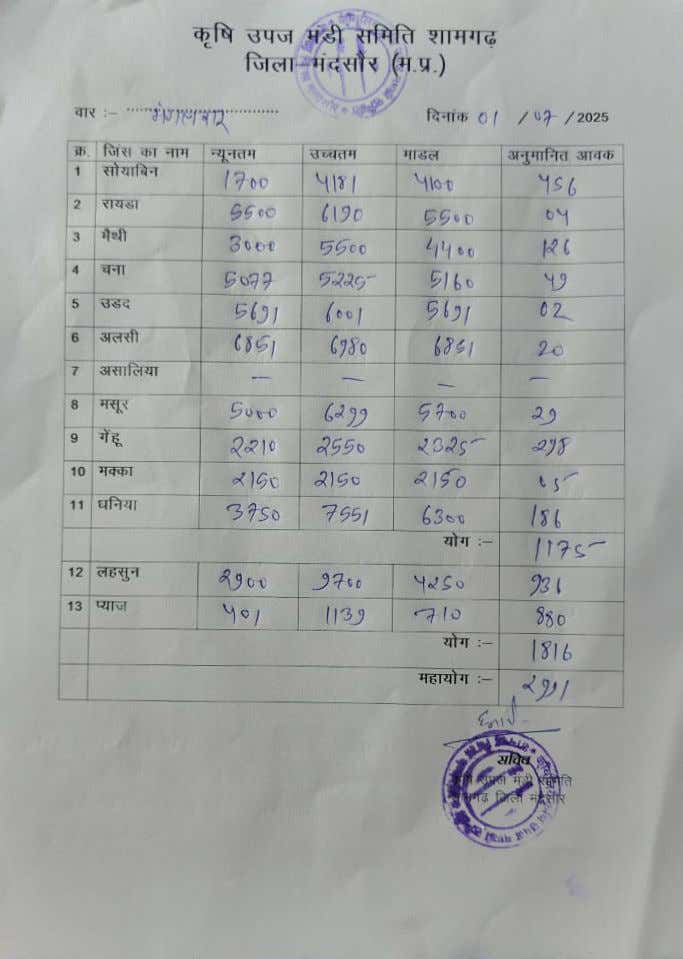 कृषि उपज मंडी समिति शामगढ़
जिला मंदसौर (म.प्र.)
वार :– मंगलवार दिनांक 01 / 07 / 2025
क्र. जिंस का नाम न्यूनतम उच्चतम माडल अनुमानित आवक
1 सोयाबिन 1700 4181 4100 456
2 रायडा 5500 6190 5500 04
3 मैथी 3000 5500 4400 126
4 चना 5077 5225 5160 49
5 उडद 5691 6001 5691 02
6 अलसी 6851 6980 6851 20
7 असालिया – – – –
8 मसूर 5000 6299 5700 29
9 गेंहू 2210 2550 2325 298
10 मक्का 2150 2150 2150 05
11 धनिया 3750 7551 6300 186
योग :– 1175
12 लहसुन 2900 9700 4250 936
13 प्याज 401 1139 710 880
योग :– 1816
महायोग :– 2991
सचिव
कृषि उपज मंडी समिति
शामगढ़ जिला मंदसौर